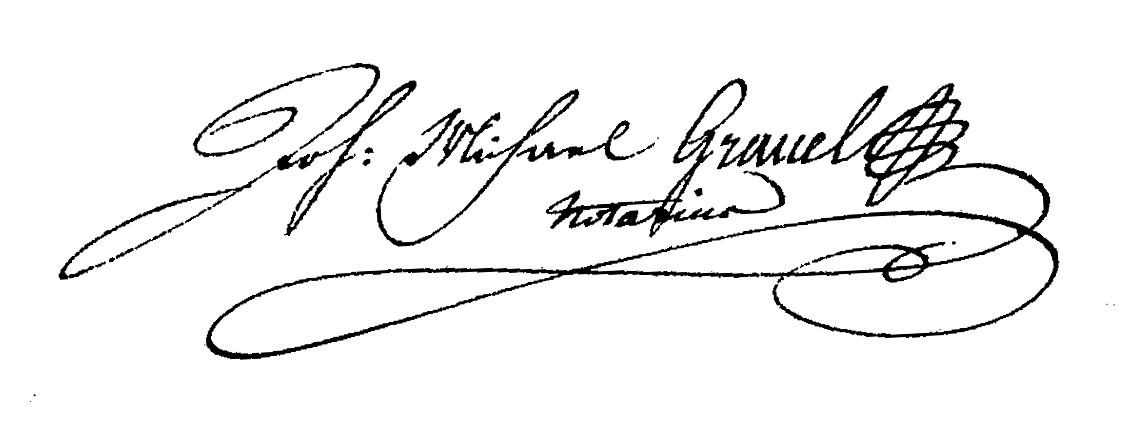 Joh: Michael Grauel
Notarius